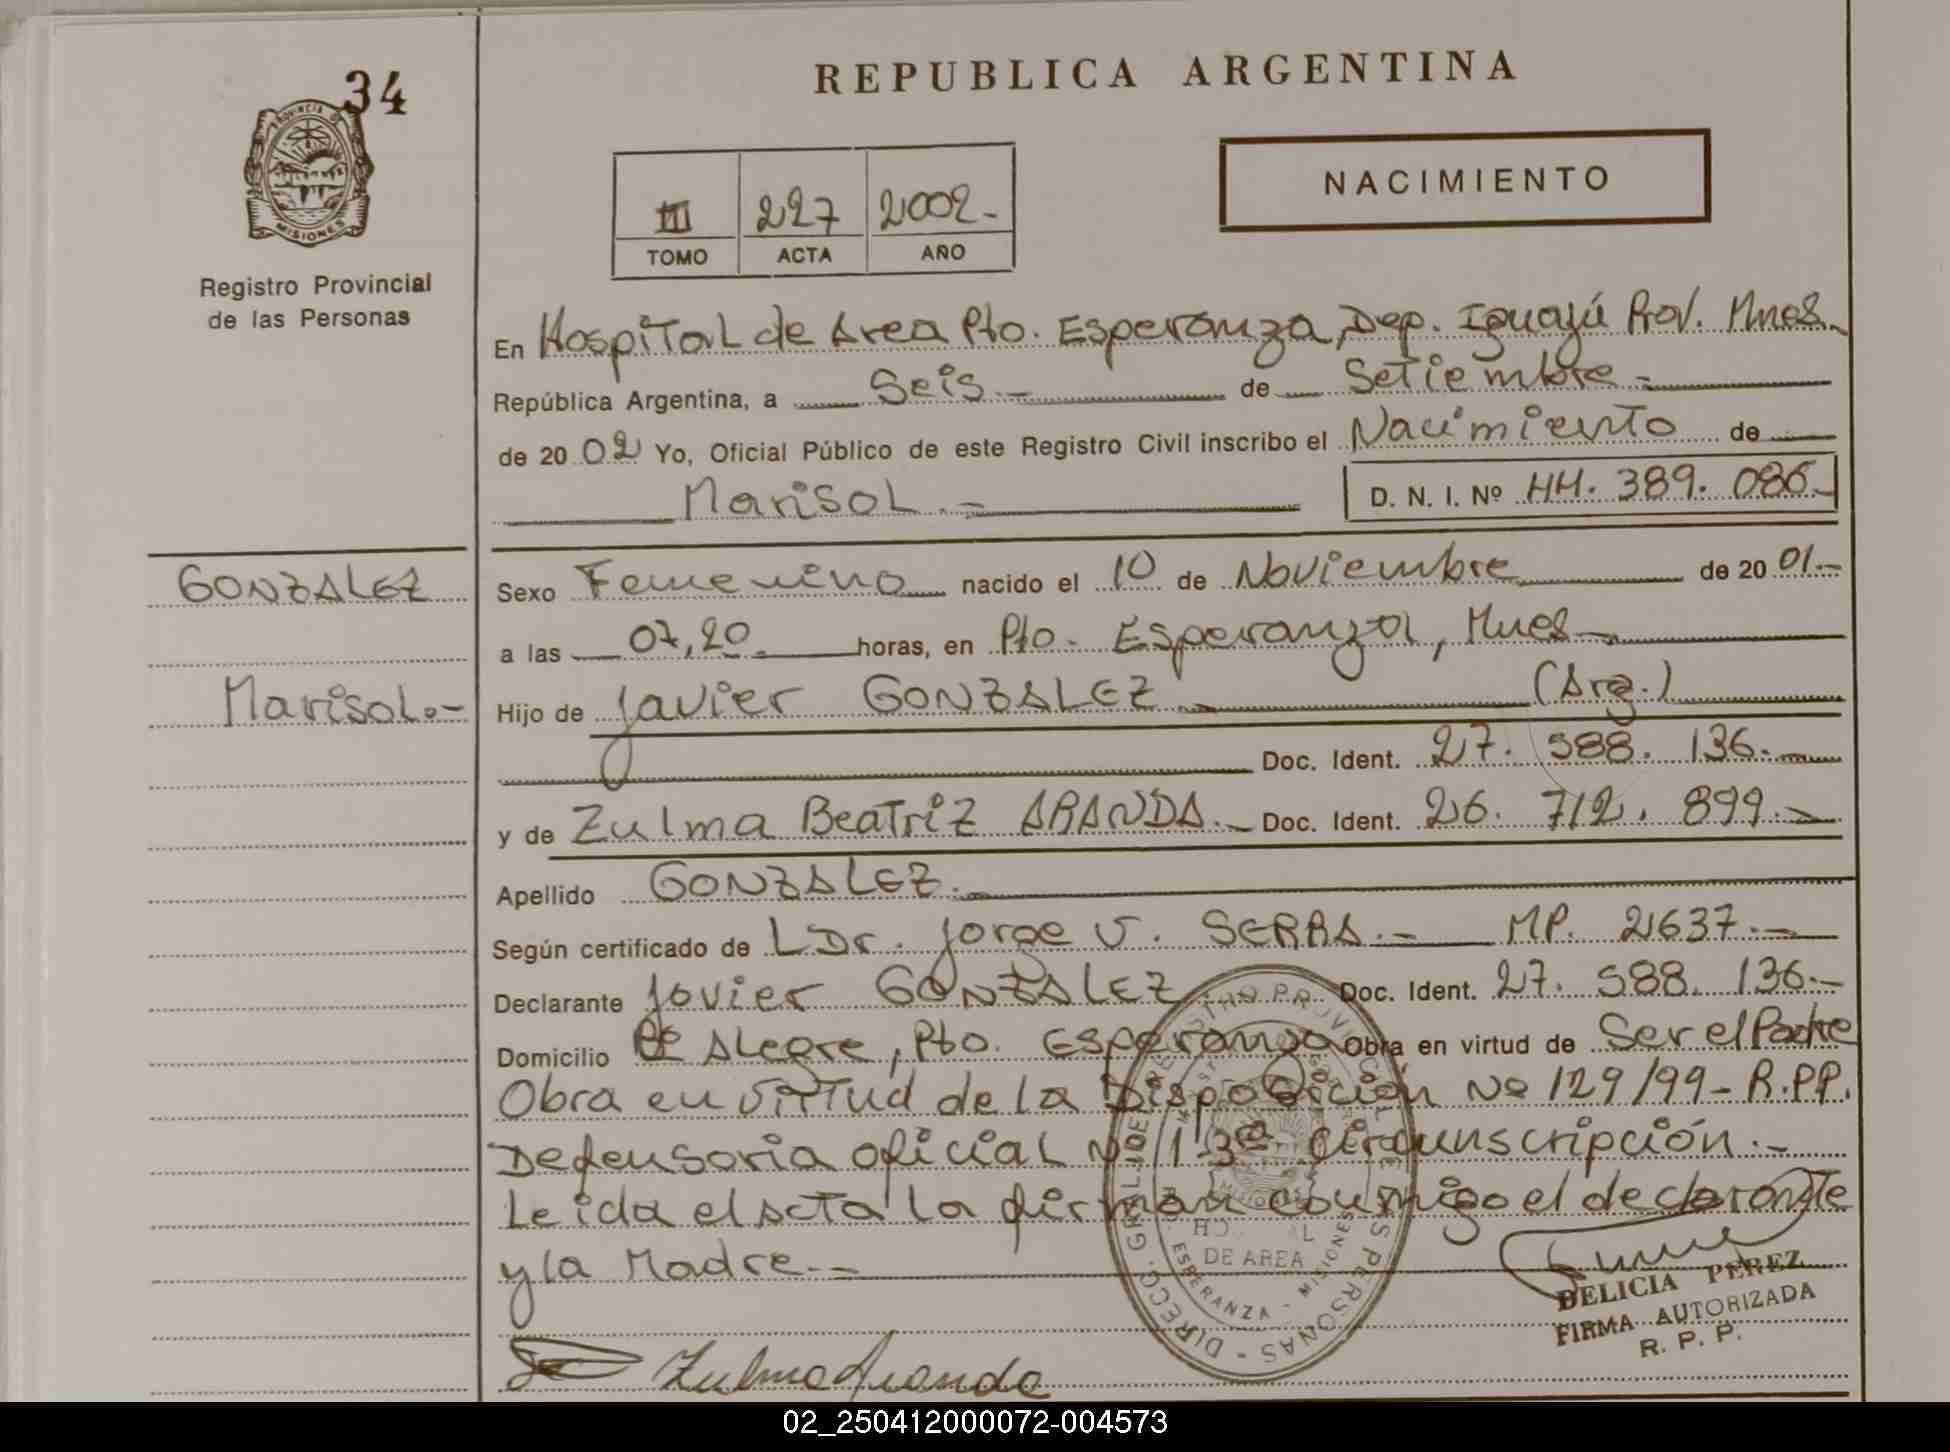 34
PROVINCIA DE
MISIONES
Registro Provincial
de las Personas
REPUBLICA ARGENTINA
III 227 2002.-
TOMO ACTA AÑO
NACIMIENTO
En Hospital de Area Pto. Esperanza, Dep. Iguazú Prov. Mnes.
República Argentina, a Seis.- de Setiembre.-
de 20 02 Yo, Oficial Público de este Registro Civil inscribo el Nacimiento de
Marisol.- D. N. I. Nº 44. 389. 086.-
GONZALEZ
Marisol.-
Sexo Femenino nacido el 10 de Noviembre de 20 01.-
a las 07,20. horas, en Pto. Esperanza, Mnes.-
Hijo de Javier GONZALEZ.- (Arg.)
Doc. Ident. 27. 588. 136.-
y de Zulma Beatriz ARANDA.- Doc. Ident. 26. 712. 899.-
Apellido GONZALEZ.-
Según certificado de L Dr. Jorge V. SERRA.- MP. 2637.-
Declarante Javier GONZALEZ Doc. Ident. 27. 588. 136.-
Domicilio Bº Alegre, Pto. Esperanza Obra en virtud de Ser el Padre
Obra en virtud de la Disposición Nº 129/99- R.P.P.
Defensoria oficial Nº 1-3ª circunscripción.-
Leida el Acta la firman conmigo el declarante
y la Madre.-
DIRECC. GRAL. DE REGISTRO PROVINCIAL DE LAS PERSONAS
DE AREA
ESPERANZA - MISIONES
DELICIA PEREZ
FIRMA AUTORIZADA
R. P. P.
Zulma Aranda
02_250412000072-004573